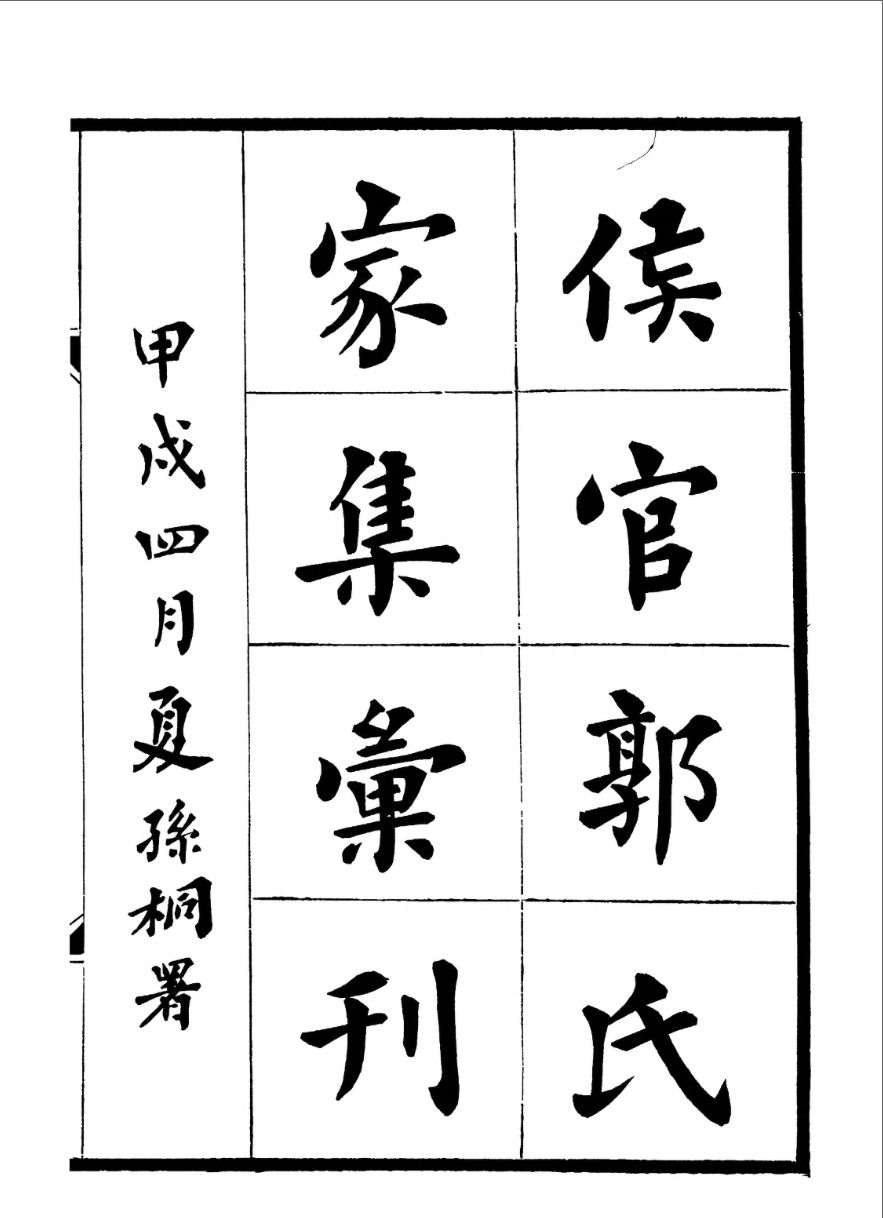 侯官郭氏
家集彙刊
甲戌四月夏孫桐署